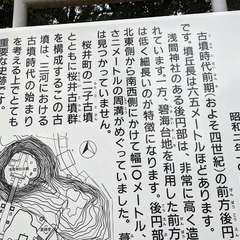 昭和二
古墳時代前期(およそ四世紀)の前方後円
です。墳丘長は六五メートルほどあります。
浅間神社のある後円部は、非常に高く造
れています。一方、碧海台地を利用した前方
は低く細長いのが特徴になります。後円部
北東側から南西側にかけて幅一〇メートル、
さ二メートルの周溝がめぐっていました。葺
は見つかっていません。
桜井町の二子古墳
とともに桜井古墳群
を構成するこの古
墳は、三河における
古墳時代の始まり
を考える上でとても
重要な史跡です。